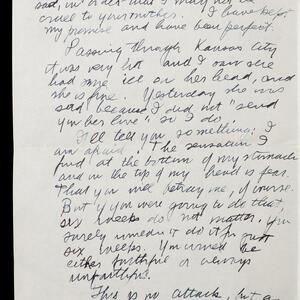 sad, in order that I may not be
cruel to your mother. I have kept
my promise and have been perfect.
Passing through Kansas City
it was very hot and I saw she
had some ice on her head, and
she is fine. Yesterday she was
sad because I did not "send
you her love" so I do.
I'll tell you something: I
am afraid. The sensation I
find at the bottom of my stomach
and in the top of my head is fear.
That you will betray me, of course.
But if you were going to do that,
six weeks do not matter. You
surely wouldn't do it for just
six weeps. You would be
either faithful or always
unfaithful.
This is no attack, but a